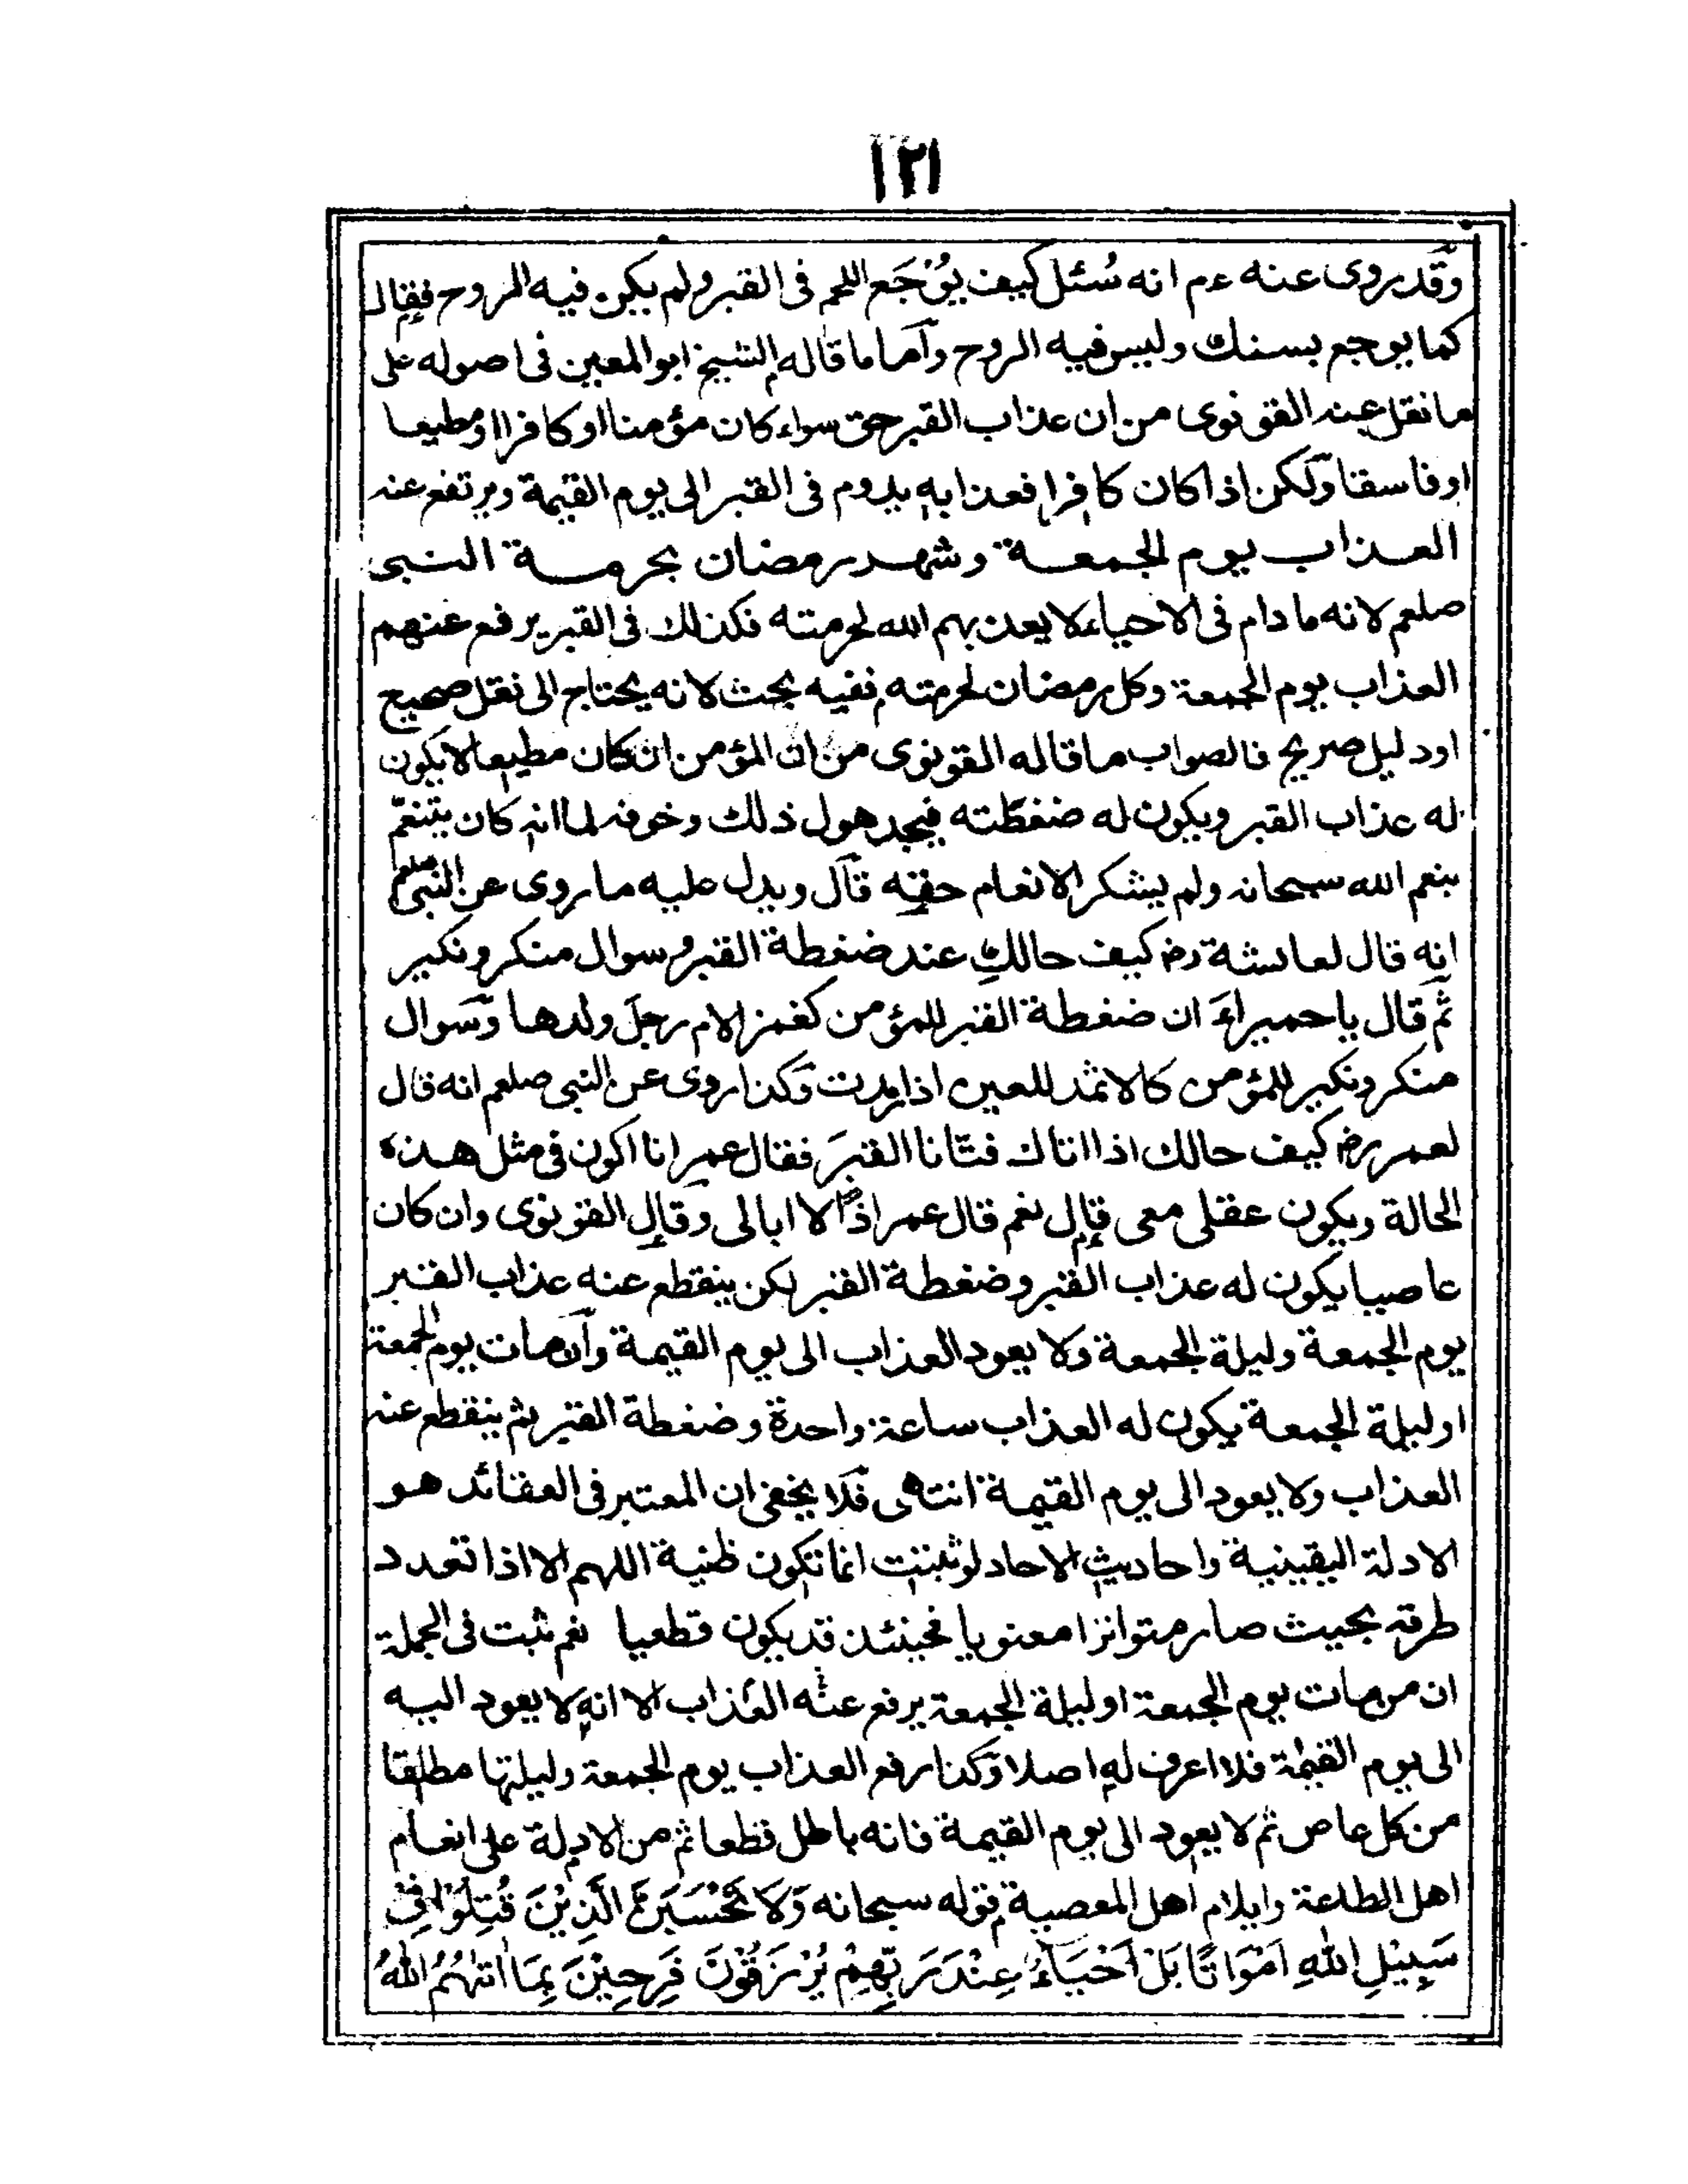 ١٢١
وقد روى عنه ءم انه سُئل كيف يُؤْجَع اللحم فى القبر ولم يكن فيه الروح فقال
كما يوجع بسنك وليس فيه الروح وآما ما قاله الشيخ ابو المعين فى اصوله على
ما نقل عنه القونوى من ان عذاب القبر حق سواء كان مؤمنا او كافرا او مطيعا
او فاسقا ولكن اذا كان كافرا فعذابه يدوم فى القبر الى يوم القيمة ويرتفع عنه
العذاب يوم الجمعة وشهر رمضان بحرمة النبى
صلعم لانه ما دام فى الاحياء لا يعذبهم الله لحرمته فكذلك فى القبر يرفع عنهم
العذاب يوم الجمعة وكل رمضان لحرمته ففيه بحث لانه يحتاج الى نقل صحيح
او دليل صريح فالصواب ما قاله القونوى من ان المؤمن ان كان مطيعا لا يكون
له عذاب القبر ويكون له ضغطته فيجد هول ذلك وخوفه لما انه كان يتنعّم
بنعم الله سبحانه ولم يشكر الانعام حقه قآل ويدل عليه ما روى عن النبى صلعم
انه قال لعائشة رض كيف حالكِ عند ضغطة القبر وسوال منكر ونكير
ثم قال يا حميراء ان ضغطة القبر للمؤمن كغمز الام رجل ولدها وسوال
منكر ونكير للمؤمن كالاثمد للعين اذا رمدت وكذا روى عن النبى صلعم انه قال
لعمر رض كيف حالك اذا اتاك فتّانا القبر فقال عمر انا اكون فى مثل هذه
الحالة ويكون عقلى معى قال نعم قال عمر اذًا لا ابالى وقال القونوى وان كان
عاصيا يكون له عذاب القبر وضغطة القبر لكن ينقطع عنه عذاب القبر
يوم الجمعة وليلة الجمعة ولا يعود العذاب الى يوم القيمة وآن مات يوم الجمعة
او ليلة الجمعة يكون له العذاب ساعة واحدة وضغطة القبر ثم ينقطع عنه
العذاب ولا يعود الى يوم القيمة انتهى فلا يخفى ان المعتبر فى العقائد هو
الادلة اليقينية واحاديث الاحاد لو ثبتت انما تكون ظنية اللهم الا اذا تعدد
طرقه بحيث صار متواترا معنويا فحينئذ قد يكون قطعيا نعم ثبت فى الجملة
ان من مات يوم الجمعة او ليلة الجمعة يرفع عنه العذاب الا انه لا يعود اليه
الى يوم القيمة فلا اعرف له اصلا وكذا رفع العذاب يوم الجمعة وليلتها مطلقا
من كل عاص ثم لا يعود الى يوم القيمة فانه باطل قطعا ثم من الادلة على انعام
اهل الطاعة وايلام اهل المعصية قوله سبحانه وَلَا تَحْسَبَنَّ الَّذِيْنَ قُتِلُوْا فِىْ
سَبِيْلِ اللهِ اَمْوَاتًا بَلْ اَحْيَاءٌ عِنْدَ رَبِّهِمْ يُرْزَقُوْنَ فَرِحِيْنَ بِمَا اٰتٰهُمُ اللهُ